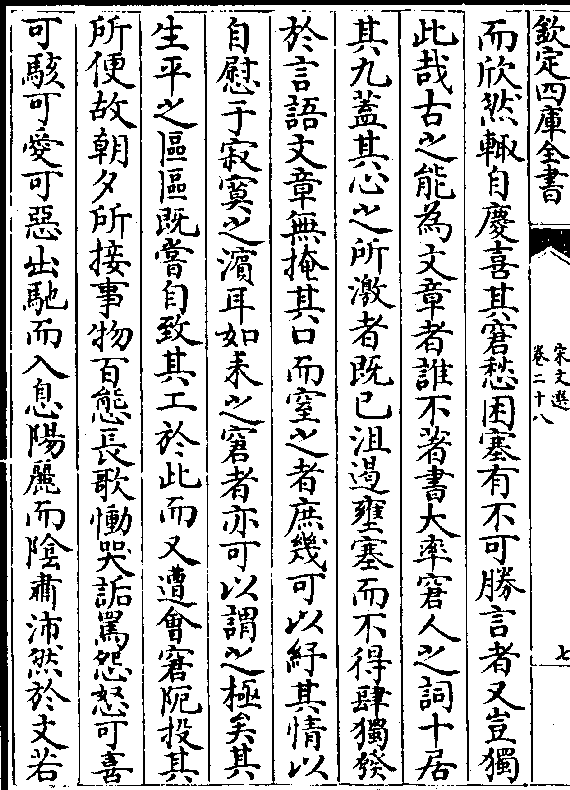 欽定四庫全書
宋文選
卷二十八
七
而欣然輙自慶喜其窘愁困塞有不可勝言者又豈獨
此哉古之能為文章者誰不著書大率窘人之詞十居
其九蓋其心之所激者既已沮遏壅塞而不得肆獨發
於言語文章無掩其口而窒之者庶幾可以紓其情以
自慰于寂寞之濵耳如耒之窘者亦可以謂之極矣其
生平之區區既嘗自致其工於此而又遭會窘阨投其
所便故朝夕所接事物百態長歌慟哭詬罵怨怒可喜
可駭可愛可惡出馳而入息陽麗而陰肅沛然於文若